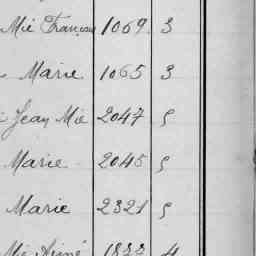 Mie François 1069. 3
Marie 1065 3
Jean Mie 2047 5
Marie 2045 5
Marie 2321 5
Mie Aimé 1822 4